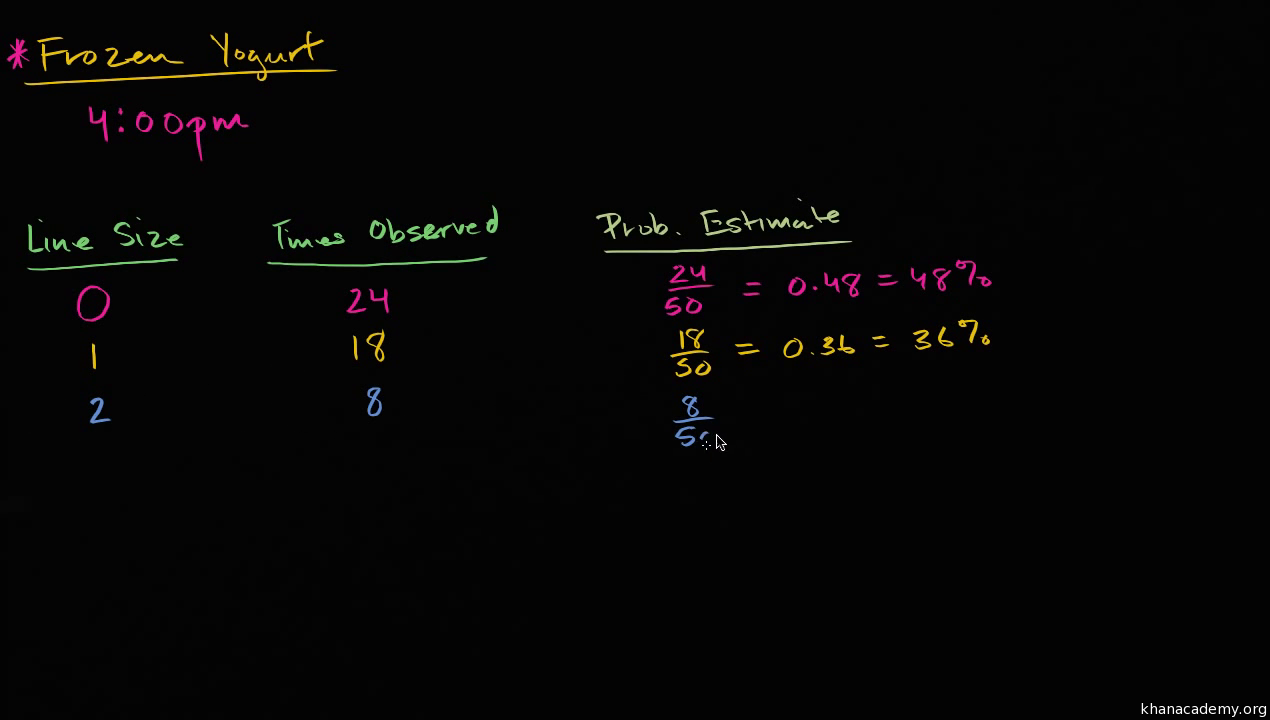 * Frozen Yogurt
4:00pm
Line Size Times Observed Prob. Estimate
0 24 24/50 = 0.48 = 48%
1 18 18/50 = 0.36 = 36%
2 8 8/50
khanacademy.org